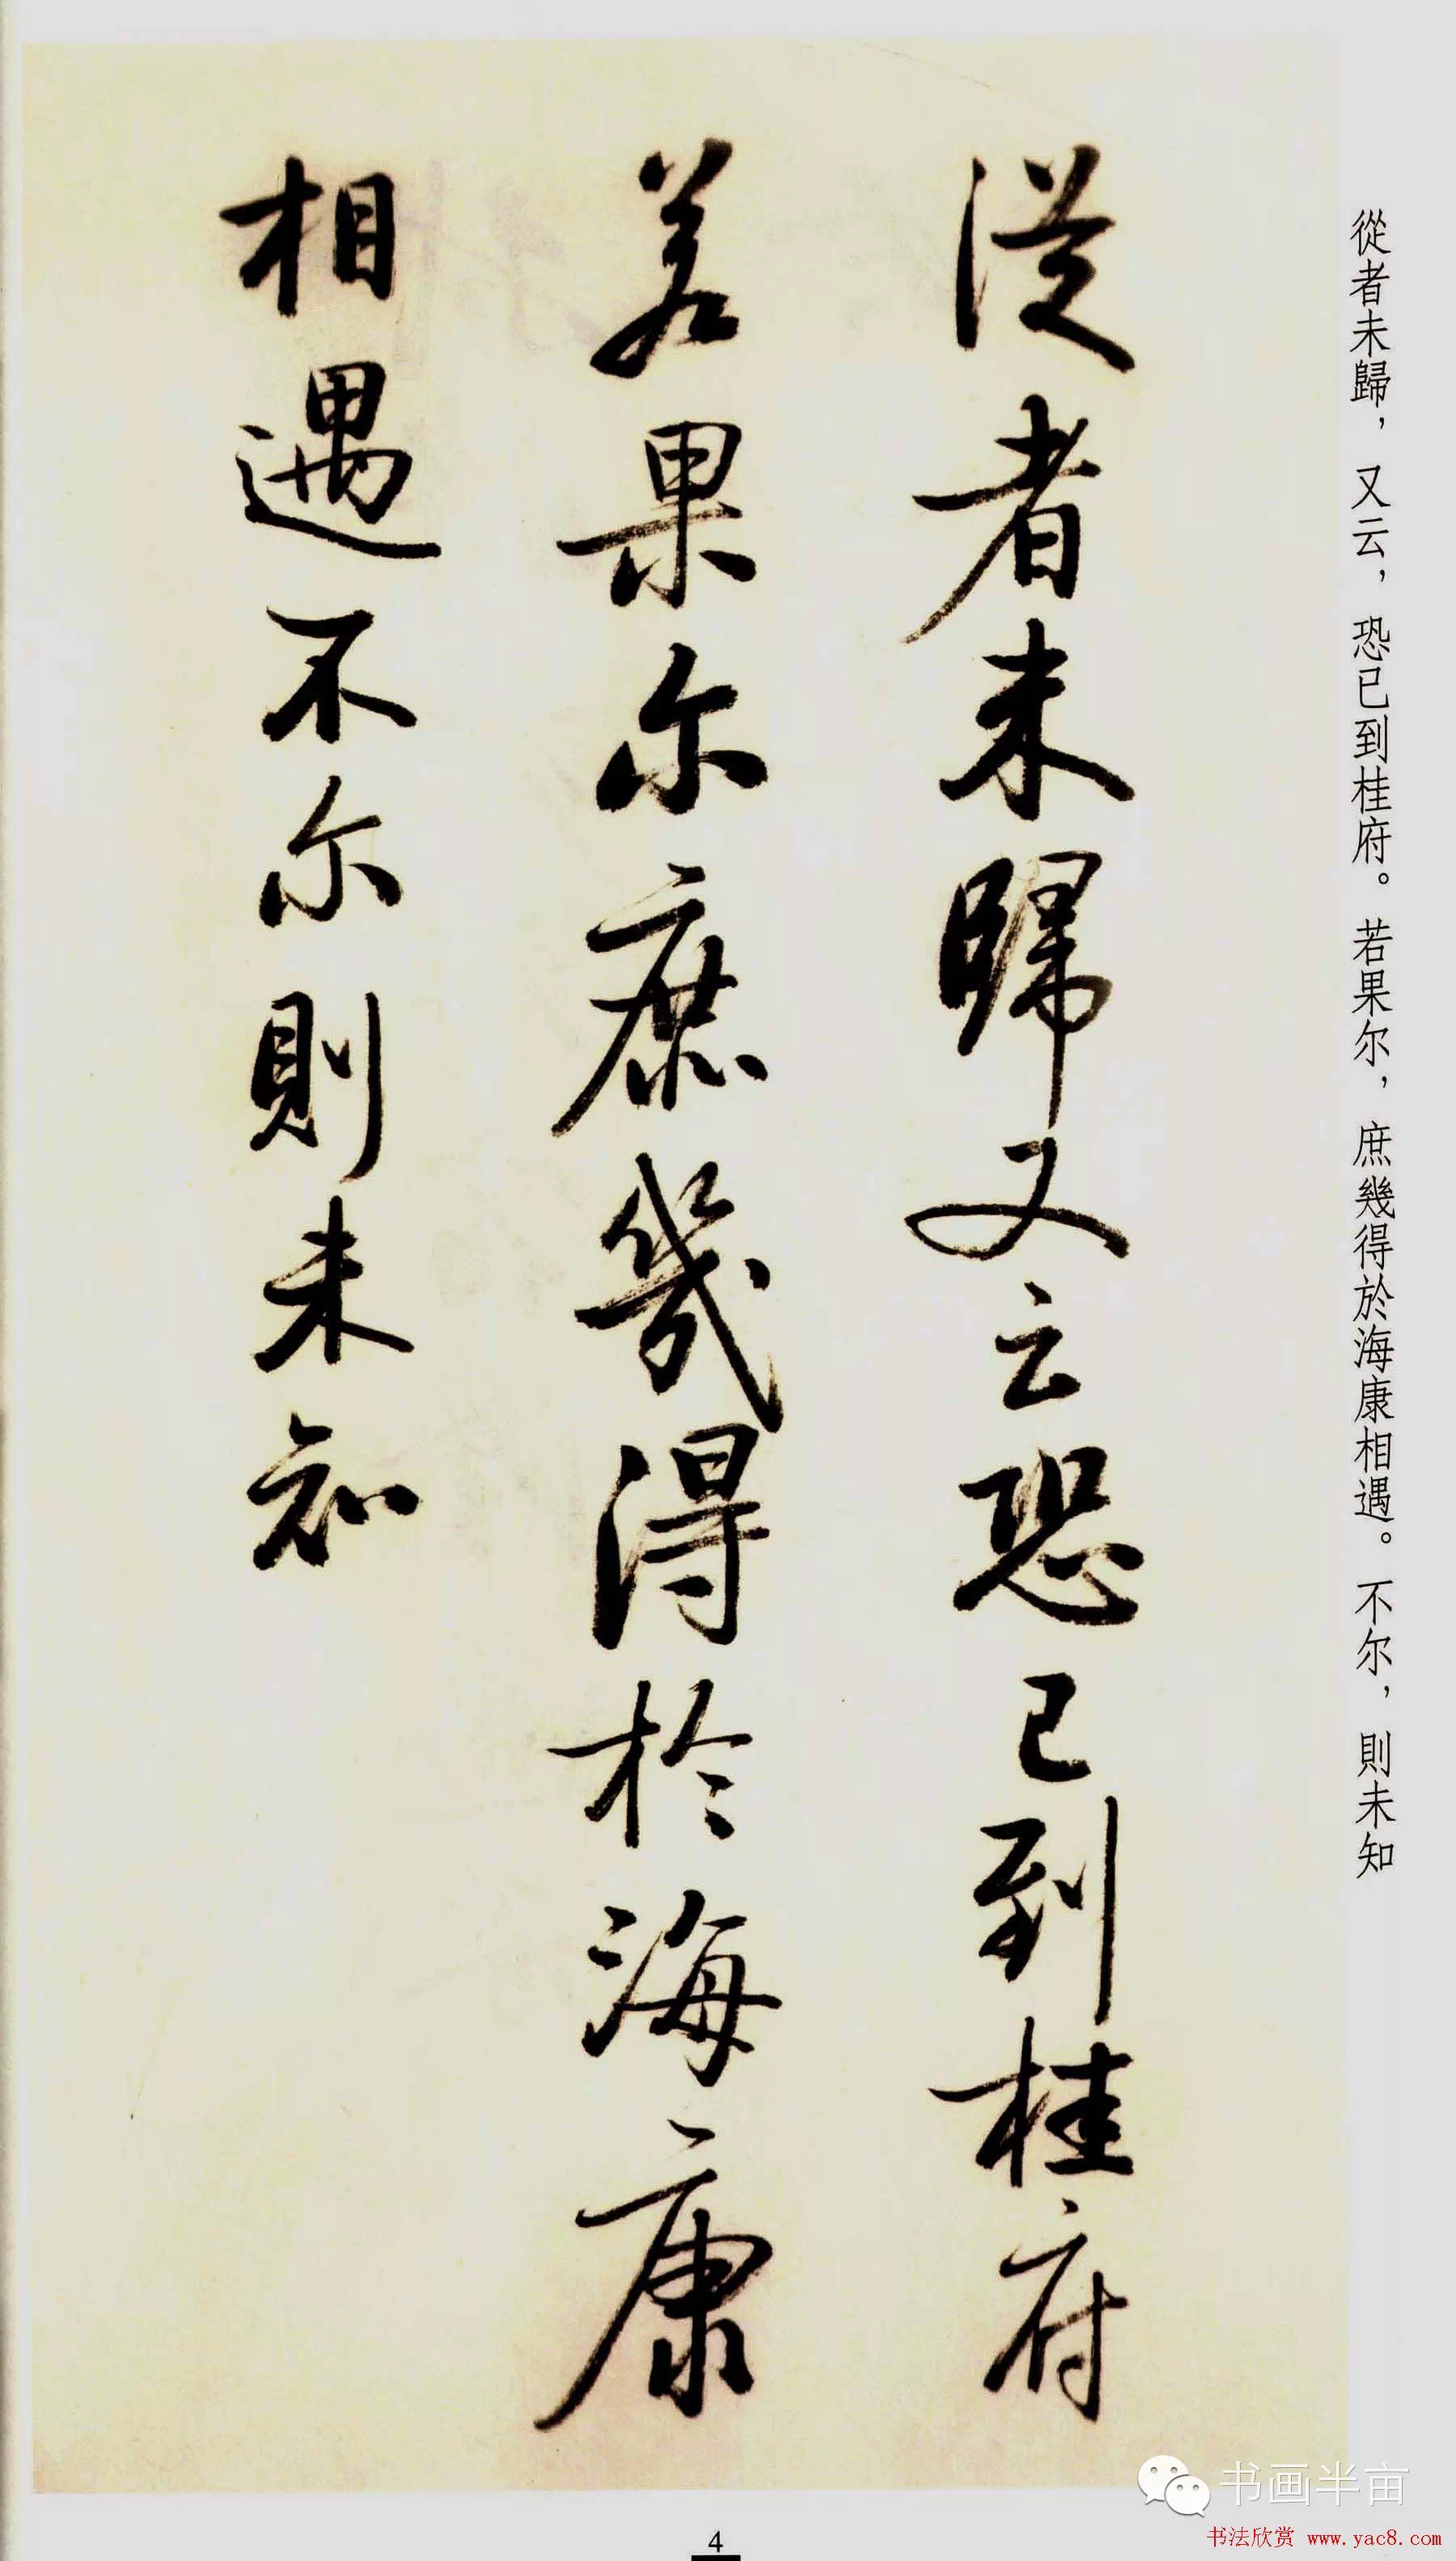 從者未歸，又云，恐已到桂府。若果尔，庶幾得於海康相遇。不尔，則未知
從者未歸又云恐已到桂府
若果尔庶幾得於海康
相遇不尔則未知
书画半亩
书法欣赏 www.yac8.com
4